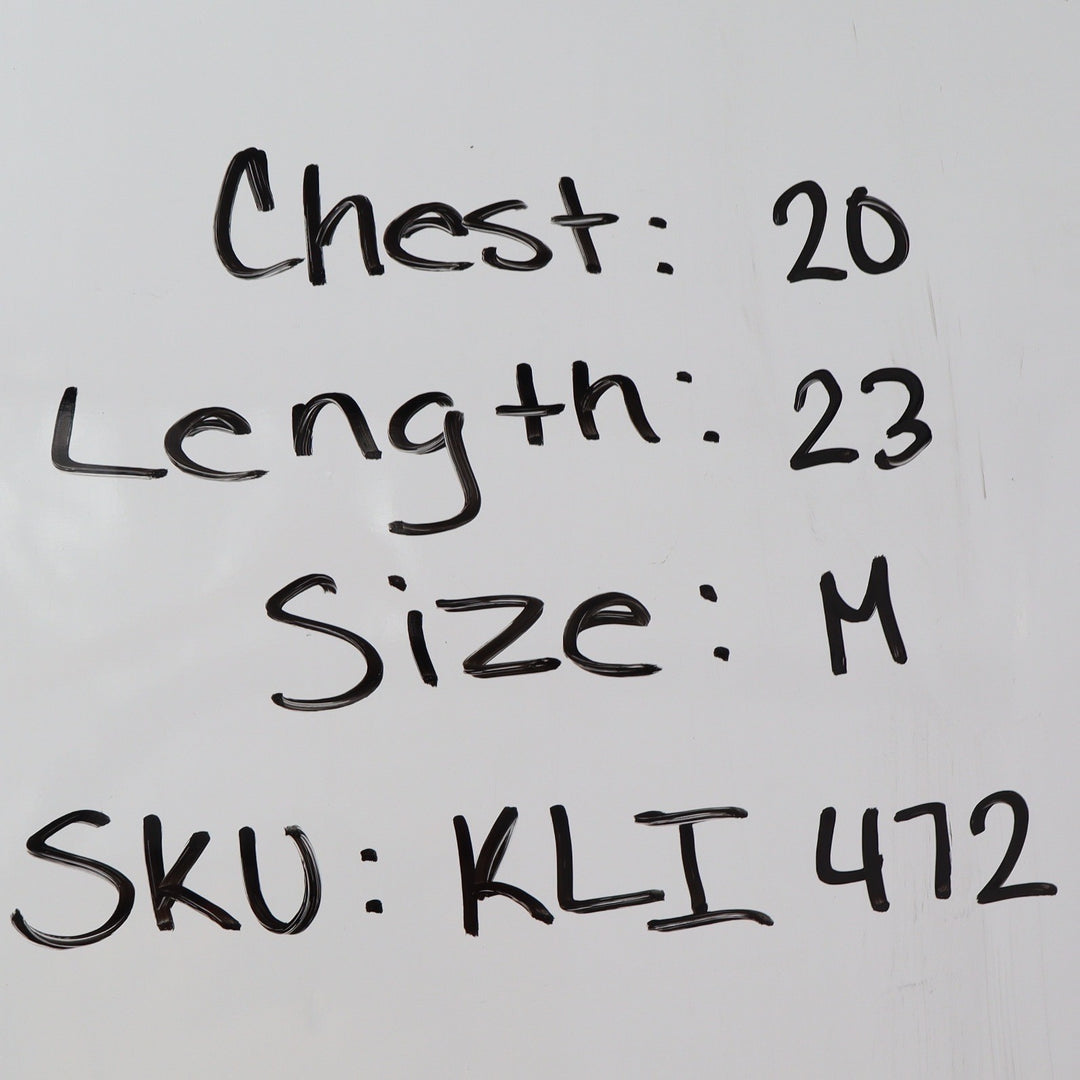 Chest: 20
Length: 23
Size: M
SKU: KLI 472